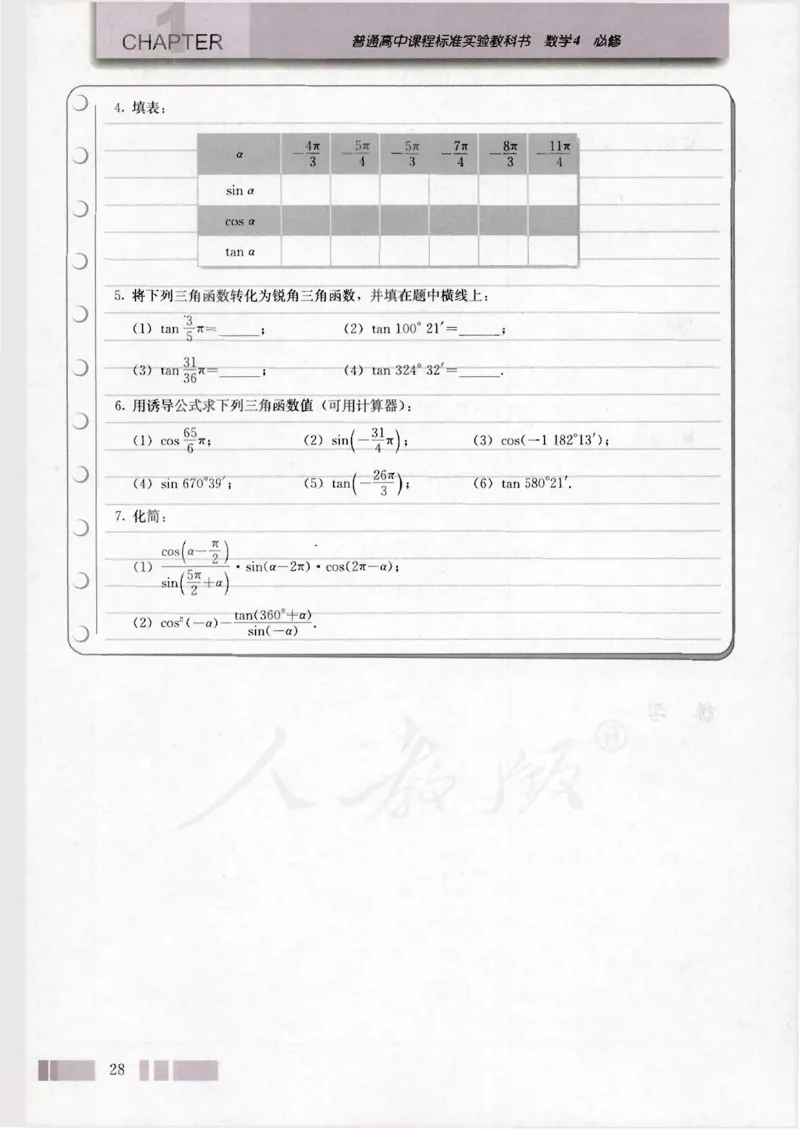 1
CHAPTER 普通高中课程标准实验教科书 数学4 必修
4. 填表:
α -4π/3 -5π/4 -5π/3 -7π/4 -8π/3 -11π/4
sin α
cos α
tan α
5. 将下列三角函数转化为锐角三角函数,并填在题中横线上:
(1) tan 3/5 π=______; (2) tan 100°21′=______;
(3) tan 31/36 π=______; (4) tan 324°32′=______.
6. 用诱导公式求下列三角函数值(可用计算器):
(1) cos 65/6 π; (2) sin(-31/4 π); (3) cos(-1 182°13′);
(4) sin 670°39′; (5) tan(-26π/3); (6) tan 580°21′.
7. 化简:
(1) cos(α-π/2)/sin(5π/2+α) · sin(α-2π) · cos(2π-α);
(2) cos²(-α)-tan(360°+α)/sin(-α).
人教版®
28